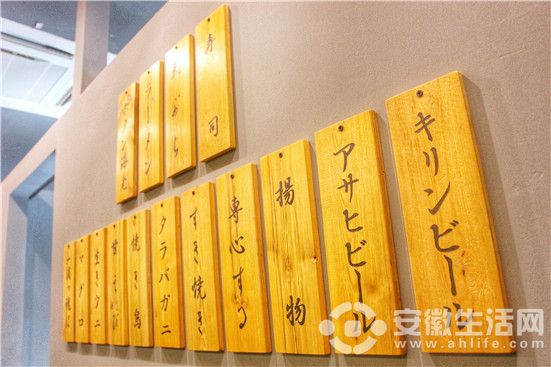 寿司
ラーメン
キリンビール
アサヒビール
揚物
専心する
すき焼き
タラバガニ
焼き鳥
甘えび
生ウニ
マグロ
安徽生活网
www.ahlife.com